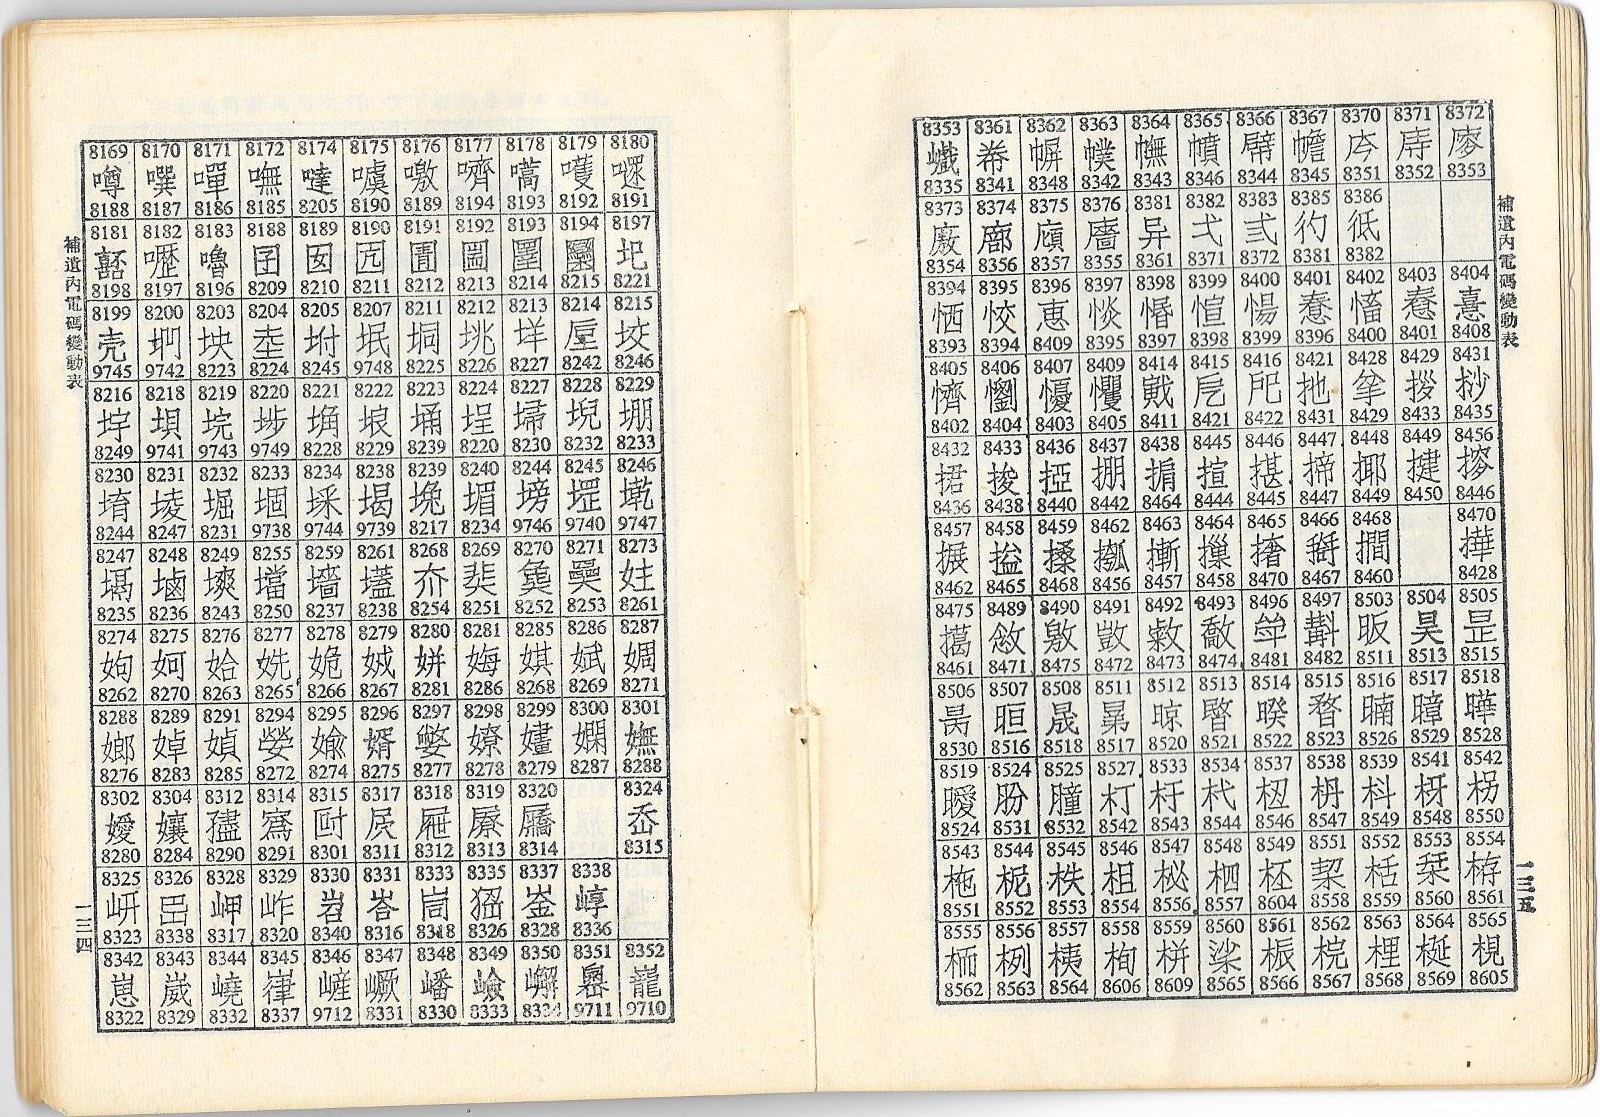 補遺內電碼變動表
8169 8170 8171 8172 8174 8175 8176 8177 8178 8179 8180
噂 噀 嘽 嘸 噠 噳 噭 嚌 嚆 嚄 嚃
8188 8187 8186 8185 8205 8190 8189 8194 8193 8192 8191
8181 8182 8183 8188 8189 8190 8191 8192 8193 8194 8197
嚭 嚦 嚕 囝 囡 园 圊 圌 圛 圞 圯
8198 8197 8196 8209 8210 8211 8212 8213 8214 8215 8221
8199 8200 8203 8204 8205 8207 8211 8212 8213 8214 8215
壳 坰 坱 坴 坿 垊 垌 垗 垟 垕 垵
9745 9742 8223 8224 8245 9748 8225 8226 8227 8242 8246
8216 8218 8219 8220 8221 8222 8223 8224 8227 8228 8229
垶 垻 垸 埗 埆 埌 埇 埕 埽 堄 堋
8249 9741 9743 9749 8228 8229 8239 8220 8230 8232 8233
8230 8231 8232 8233 8234 8238 8239 8240 8244 8245 8246
堉 堎 堀 堌 埰 堨 堍 堳 塝 堽 墘
8244 8247 8231 9738 9744 9739 8217 8234 9746 9740 9747
8247 8248 8249 8255 8259 8261 8268 8269 8270 8271 8273
堨 塷 塽 壋 墻 壒 夰 奜 奠 奰 妵
8235 8236 8243 8250 8237 8238 8254 8251 8252 8253 8261
8274 8275 8276 8277 8278 8279 8280 8281 8285 8286 8287
姁 妸 姶 姺 姽 娍 姘 娒 娸 娬 婤
8262 8270 8263 8265 8266 8267 8281 8286 8268 8269 8271
8288 8289 8291 8294 8295 8296 8297 8298 8299 8300 8301
嫏 婥 媜 嫈 媮 婿 嫳 嫽 嫿 嫻 嫵
8276 8283 8285 8272 8274 8275 8277 8278 8279 8287 8288
8302 8304 8312 8314 8315 8317 8318 8319 8320 8324
嬡 孃 孻 寯 尀 屄 屜 屪 屩 岙
8280 8284 8290 8291 8301 8311 8312 8313 8314 8315
8325 8326 8328 8329 8330 8331 8333 8335 8337 8338
岍 岊 岬 岞 岩 峇 峝 峱 崟 崞
8323 8338 8317 8320 8340 8316 8318 8326 8328 8336
8342 8343 8344 8345 8346 8347 8348 8349 8350 8351 8352
崽 崴 嶢 嵂 嵼 嶥 嶓 嶮 嶰 嶨 巃
8322 8329 8332 8337 9712 8331 8330 8333 8334 9711 9710
一三四
補遺內電碼變動表
8353 8361 8362 8363 8364 8365 8366 8367 8370 8371 8372
巇 帣 幈 幞 幠 幩 幦 幨 庈 庤 廖
8335 8341 8348 8342 8343 8346 8344 8345 8351 8352 8353
8373 8374 8375 8376 8381 8382 8383 8385 8386
廄 廍 廎 廧 异 弋 弍 彴 彽
8354 8356 8357 8355 8361 8371 8372 8381 8382
8394 8395 8396 8397 8398 8399 8400 8401 8402 8403 8404
恓 恔 惠 惔 惛 愃 愓 惷 慉 憃 憙
8393 8394 8409 8395 8397 8398 8399 8396 8400 8401 8408
8405 8406 8407 8409 8414 8415 8416 8421 8428 8429 8431
懠 懰 懮 戄 戙 戹 戺 扡 拏 拶 挱
8402 8404 8403 8405 8411 8421 8422 8431 8429 8433 8435
8432 8433 8436 8437 8438 8445 8446 8447 8448 8449 8456
捃 捘 掗 掤 掮 揎 揕 揥 揶 揵 摎
8436 8438 8440 8442 8464 8444 8445 8447 8449 8450 8446
8457 8458 8459 8462 8463 8464 8465 8466 8468 8470
搌 搤 搡 摦 摲 摷 撦 擀 撊 撶
8462 8465 8468 8456 8457 8458 8470 8467 8460 8428
8475 8489 8490 8491 8492 8493 8496 8497 8503 8504 8505
攇 敜 敫 敳 敹 敵 斝 斠 昄 昊 昰
8461 8471 8475 8472 8473 8474 8481 8482 8511 8513 8515
8506 8507 8508 8511 8512 8513 8514 8515 8516 8517 8518
昺 晅 晟 暠 晾 暋 暌 暓 暔 暲 曄
8530 8516 8518 8517 8520 8521 8522 8523 8526 8529 8528
8519 8524 8525 8527 8533 8534 8537 8538 8539 8541 8542
曖 朌 朣 朾 杅 杙 杻 枬 枓 枒 枴
8524 8531 8532 8542 8543 8544 8546 8547 8549 8548 8550
8543 8544 8545 8546 8547 8548 8549 8551 8552 8553 8554
柂 柅 柣 柤 柲 柶 柸 栔 栝 栞 栫
8551 8552 8553 8554 8556 8557 8604 8558 8559 8560 8561
8555 8556 8557 8558 8559 8560 8561 8562 8563 8564 8565
栭 栵 桋 栒 栟 桬 桭 梡 梩 梴 梘
8562 8563 8564 8606 8609 8565 8566 8567 8568 8569 8605
一三五